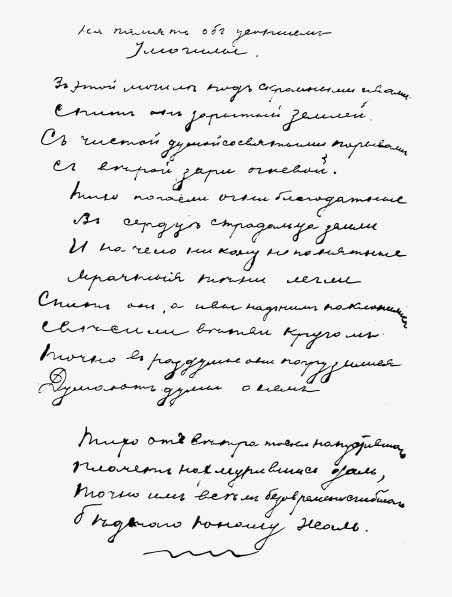 На память объ усопшемъ
У могилы.
Въ этой могилѣ подъ скромными ивами
Спитъ онъ зарытый землей.
Съ чистой душой со святыми порывами
Съ вѣрой зари огневой.
Тихо погасли огни благодатные
Въ сердцѣ страдальца земли
И на чело никому не понятные
Мрачныя тѣни легли
Спитъ он, а ивы надъ нимъ наклонилися
Свѣсили вѣтви кругомъ
Точно в раздумье они погрузилися
Думаютъ думы о немъ
Тихо отъ вѣтра тоски напустившаго
Плачетъ нахмурившись даль,
Точно имъ всѣмъ безвременно сгибшаго
Бѣдного юношу жаль.